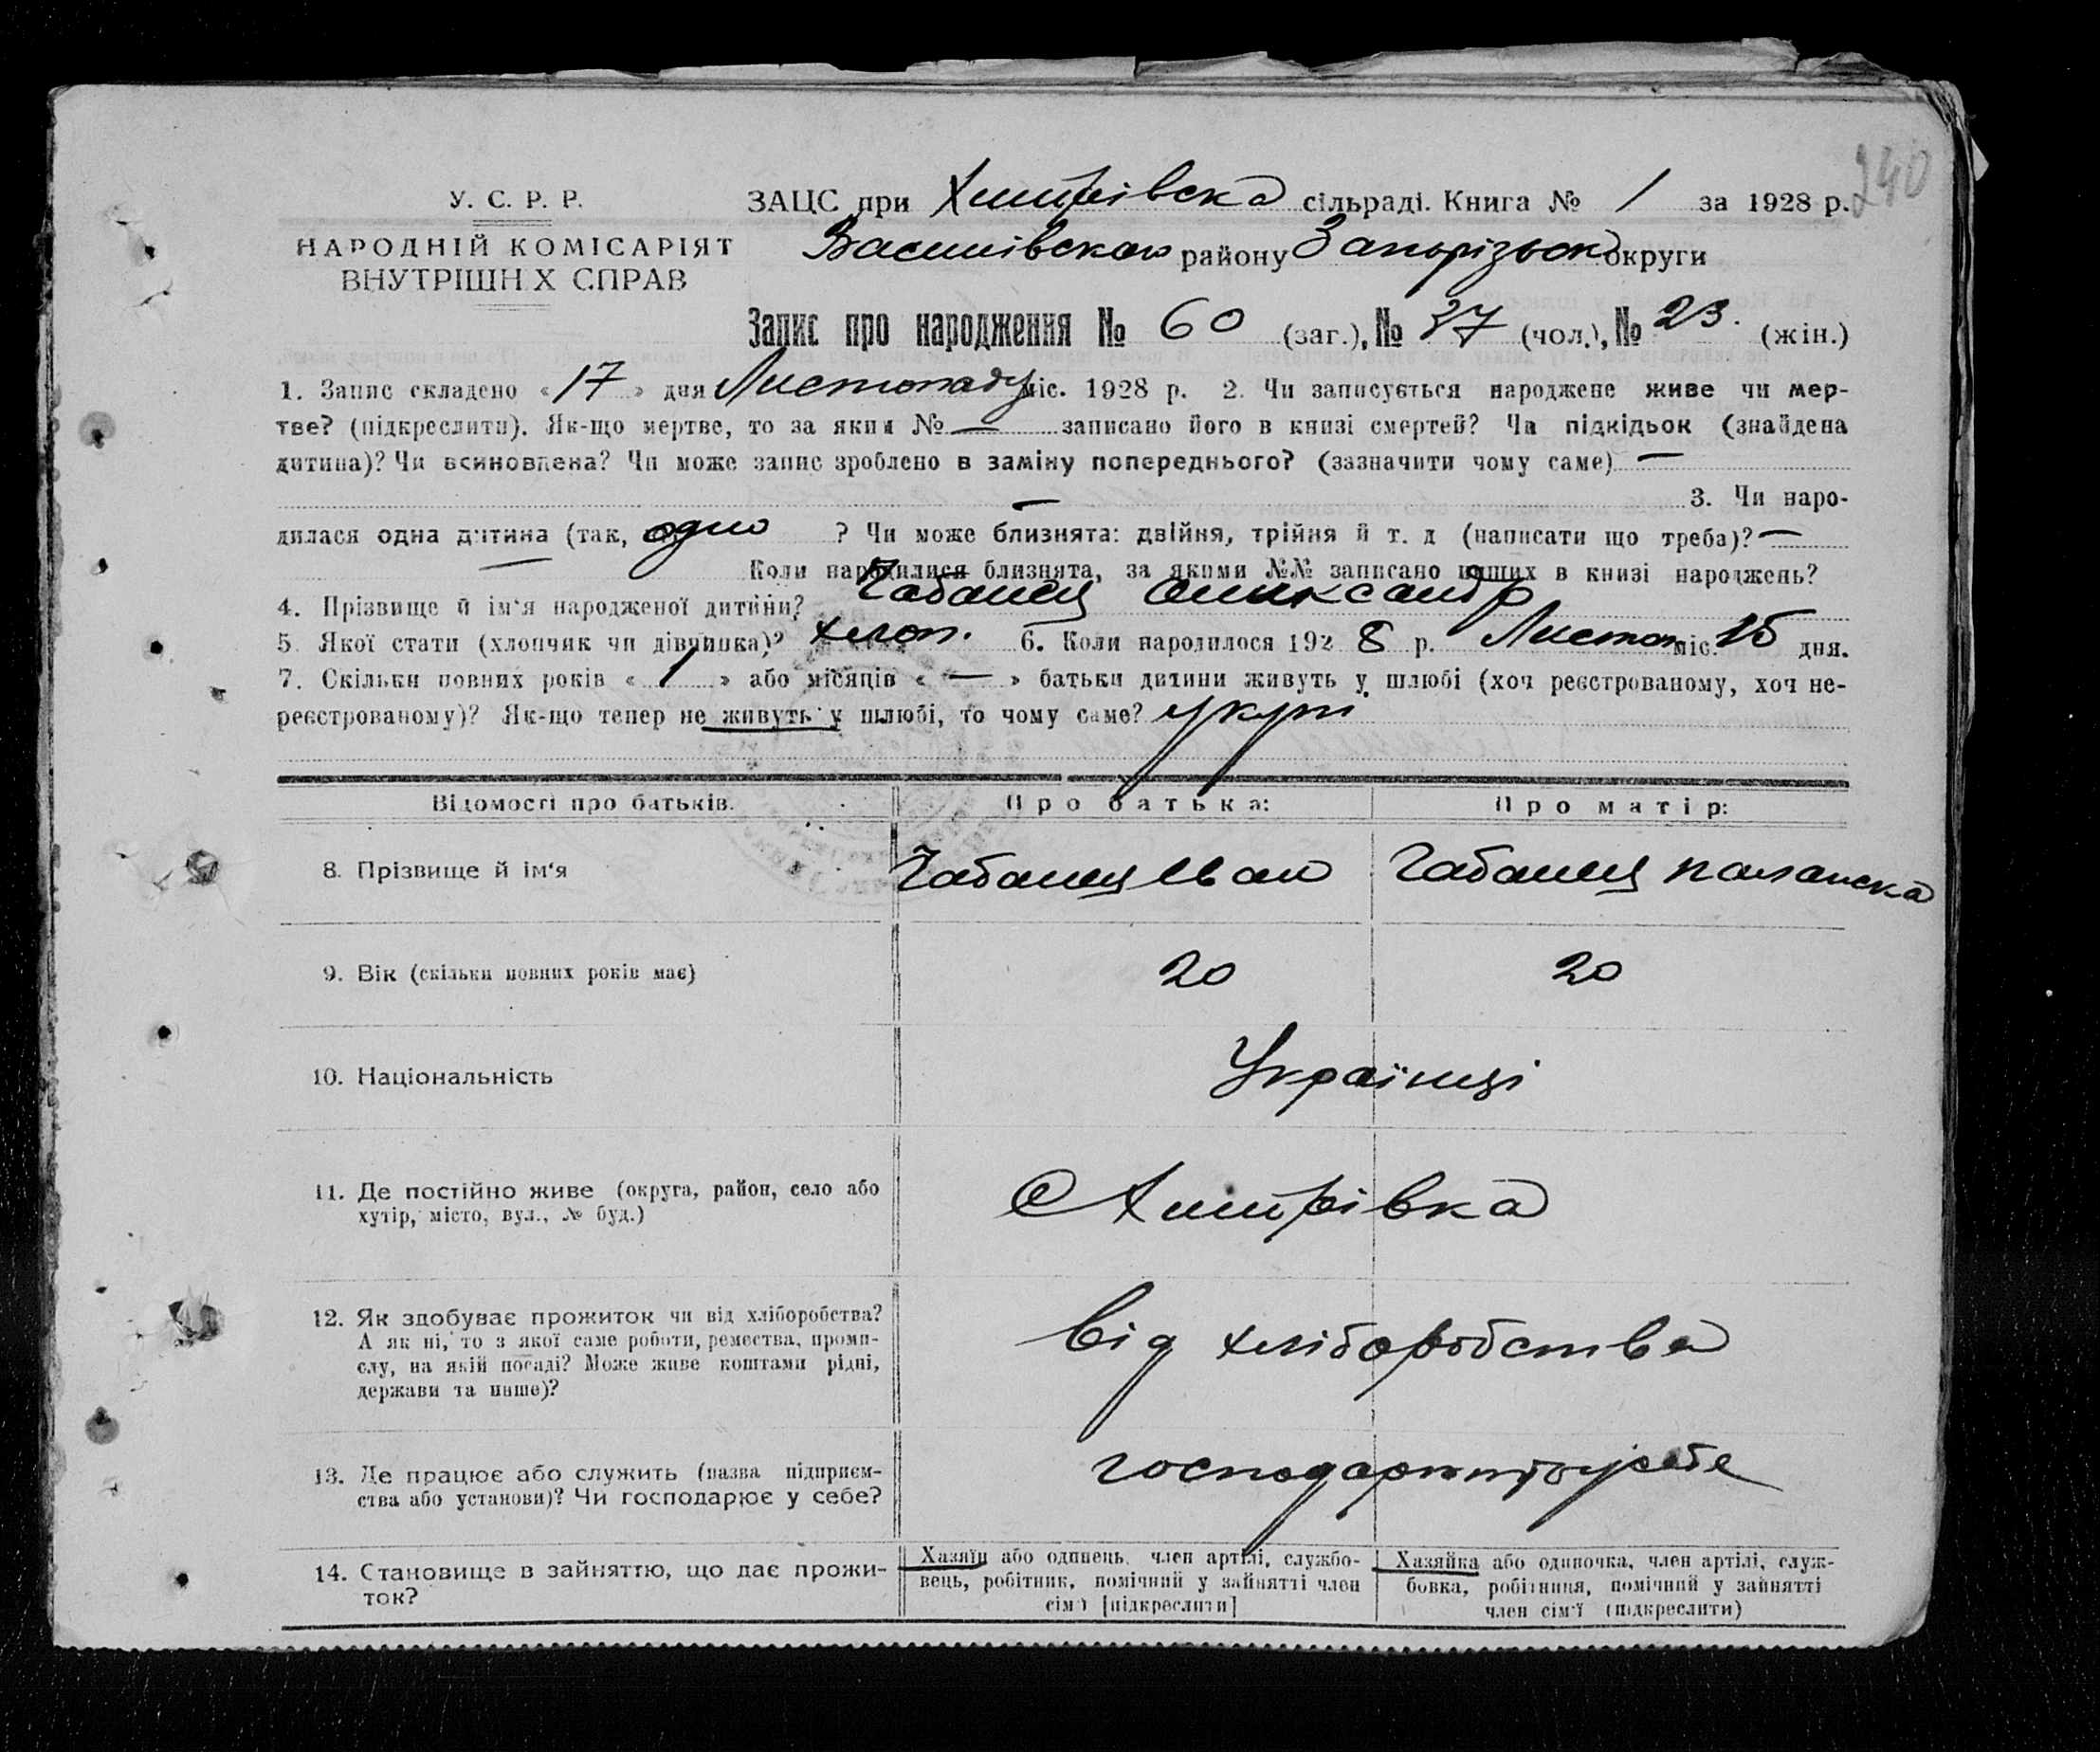 240
У. С. Р. Р.
НАРОДНІЙ КОМІСАРІЯТ
ВНУТРІШН Х СПРАВ
ЗАЦС при Хитрівска сільраді. Книга № 1 за 1928 р.
Василівского району Запорізьк округи
Запис про народження № 60 (заг.), № 37 (чол.), № 23. (жін.)
1. Запис складено «17» дня Листопаду міс. 1928 р. 2. Чи записується народжене живе чи мер-
тве? (підкреслити). Як-що мертве, то за яким № — записано його в книзі смертей? Чи підкідьок (знайдена
дитина)? Чи всиновлена? Чи може запис зроблено в заміну попереднього? (зазначити чому саме) —
— 3. Чи наро-
дилася одна дитина (так, одно ? Чи може близнята: двійня, трійня й т. д (написати що треба)? —
— Коли народилися близнята, за якими №№ записано инших в книзі народжень?
4. Прізвище й ім‘я народженої дитини? Чабанец Олександр
5. Якої стати (хлопчик чи дівчинка)? хлоп. 6. Коли народилося 1928 р. Листоп міс. 15 дня.
7. Скільки повних років «1» або місяців «—» батьки дитини живуть у шлюбі (хоч реєстрованому, хоч не-
реєстрованому)? Як-що тепер не живуть у шлюбі, то чому саме? укупі
Відомості про батьків. Про батька: Про матір:
8. Прізвище й ім‘я Чабанец Иван Чабанец Палажска
9. Вік (скільки повних років має) 20 20
10. Національність Українці
11. Де постійно живе (округа, район, село або
хутір, місто, вул., № буд.)
С Хитрівка
12. Як здобуває прожиток чи від хліборобства?
А як ні, то з якої саме роботи, ремества, проми-
слу, на якій посаді? Може живе коштами рідні,
держави та инше)?
Від хліборобства
13. Де працює або служить (назва підприєм-
ства або установи)? Чи господарює у себе?
14. Становище в зайняттю, що дає прожи-
ток?
Хазяїн або одинець, член артілі, службо-
вець, робітник, помічний у зайнятті член
сім'ї [підкреслити]
Хазяйка або одиночка, член артілі, служ-
бовка, робітниця, помічний у зайнятті
член сім'ї (підкреслити)